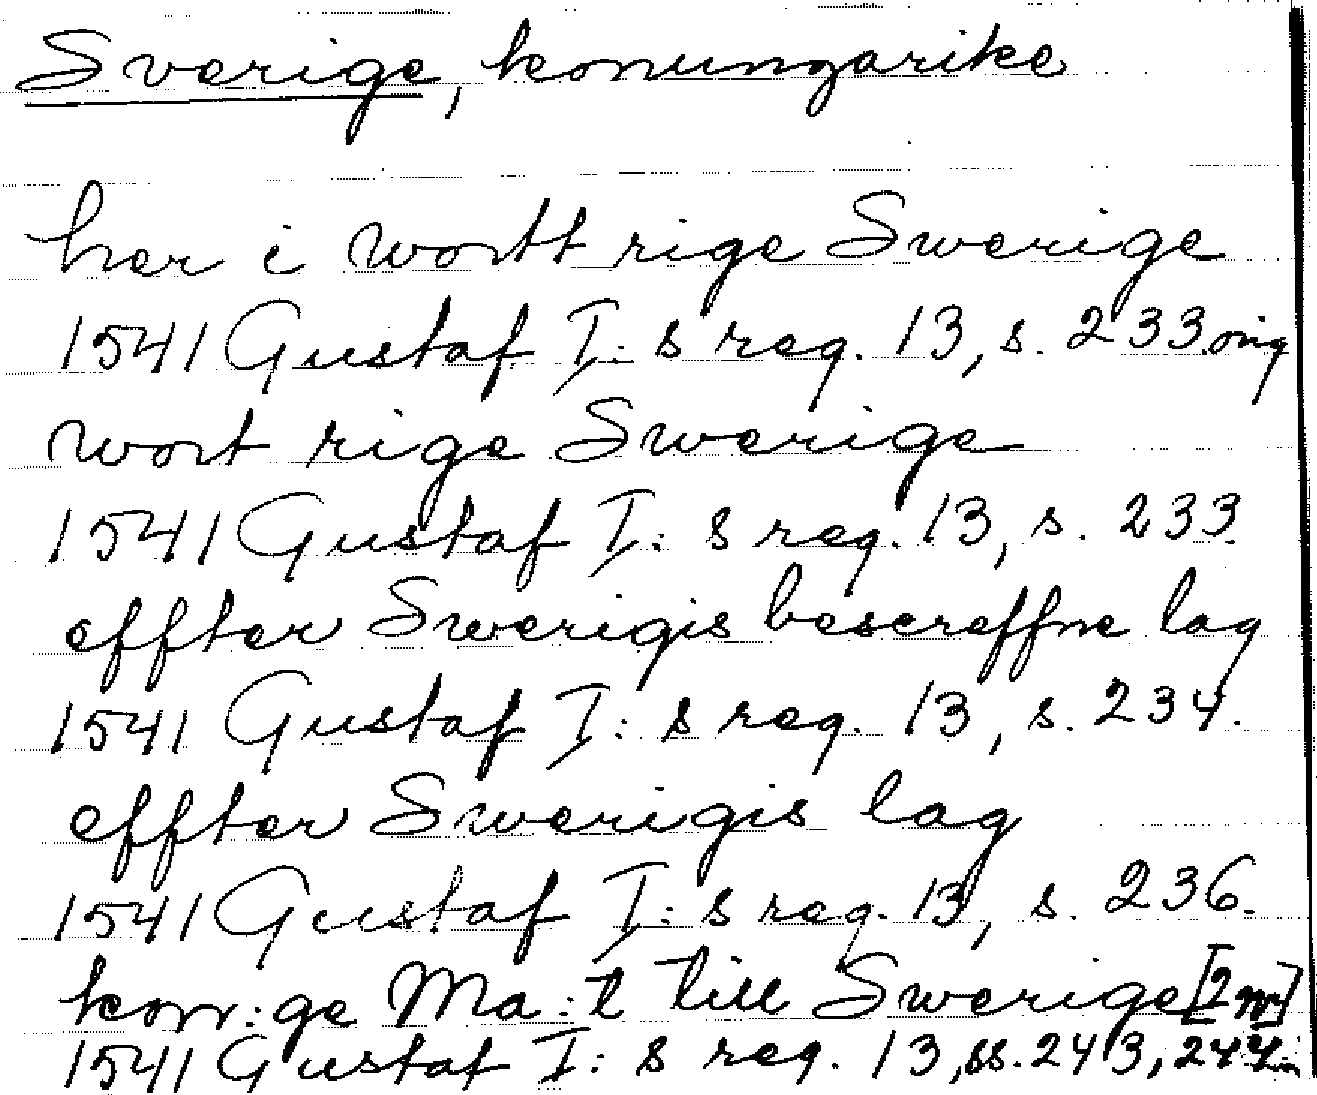 Sverige, konungarike
her i wortt rige Swerige
1541 Gustaf I: s reg. 13, s. 233. orig
wort rige Swerige
1541 Gustaf I: s reg. 13, s. 233.
effter Swerigis bescreffne lag
1541 Gustaf I: s reg. 13, s. 234.
effter Swerigis lag
1541 Gustaf I: s reg. 13, s. 236.
konn:ge Ma:t till Swerige
1541 Gustaf I: s reg. 13, ss. 243, 244